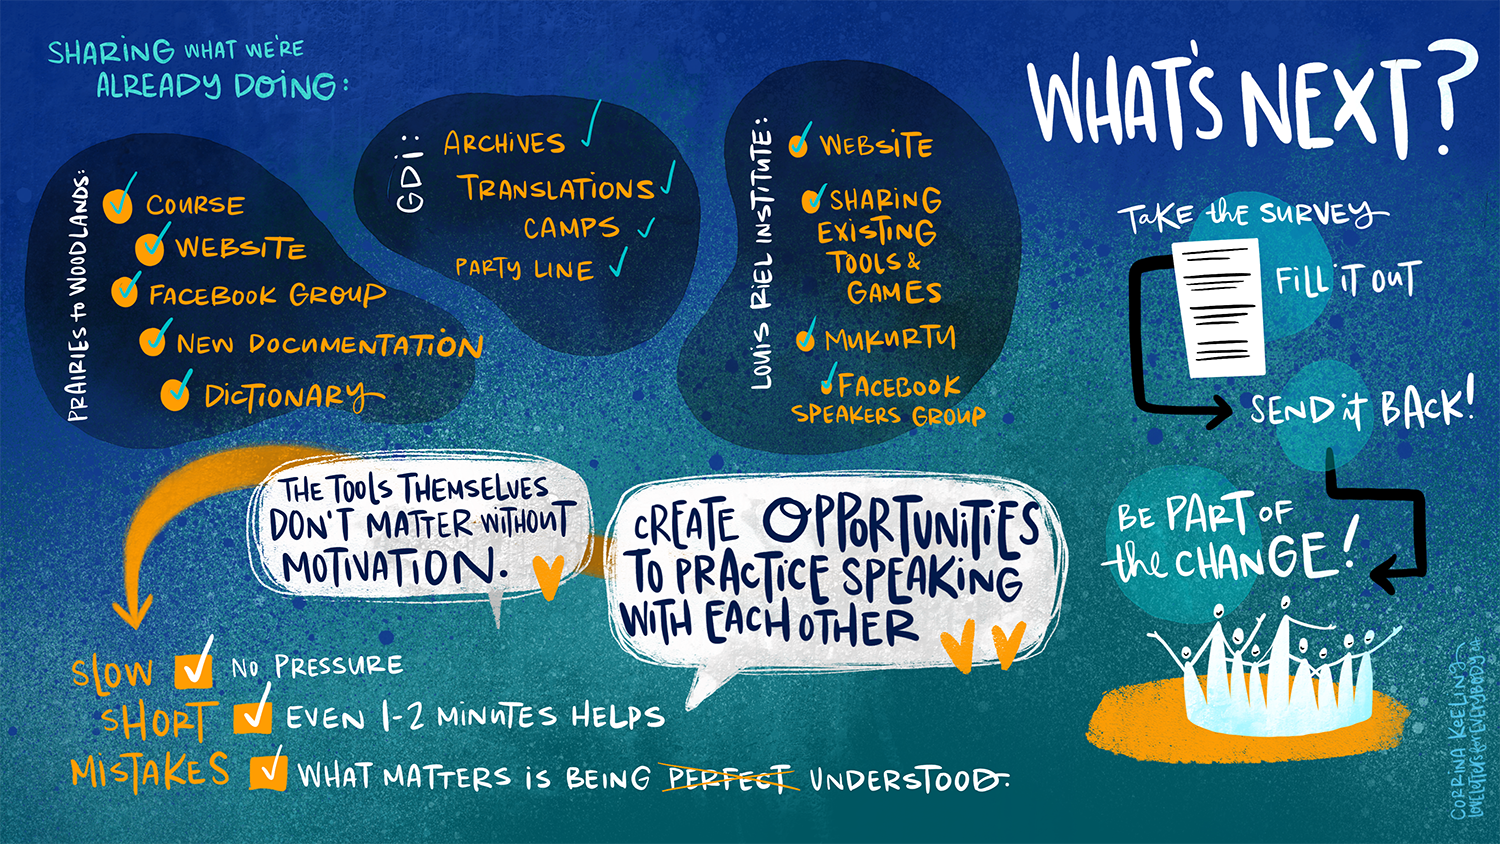 SHARING WHAT WE'RE
ALREADY DOING:
PRAIRIES to WOODLANDS:
COURSE
WEBSITE
FACEBOOK GROUP
NEW DOCUMENTATION
DICTIONARY
GDI:
ARCHIVES
TRANSLATIONS
CAMPS
PARTY LINE
LOUIS RIEL INSTITUTE:
WEBSITE
SHARING
EXISTING
TOOLS &
GAMES
MUKURTU
FACEBOOK
SPEAKERS GROUP
THE TOOLS THEMSELVES
DON'T MATTER WITHOUT
MOTIVATION.
CREATE OPPORTUNITIES
TO PRACTICE SPEAKING
WITH EACH OTHER
SLOW NO PRESSURE
SHORT EVEN 1-2 MINUTES HELPS
MISTAKES WHAT MATTERS IS BEING PERFECT UNDERSTOOD.
WHAT'S NEXT?
TAKE the SURVEY
FILL IT OUT
SEND it BACK!
BE PART OF
the CHANGE!
CORRINA KEELING